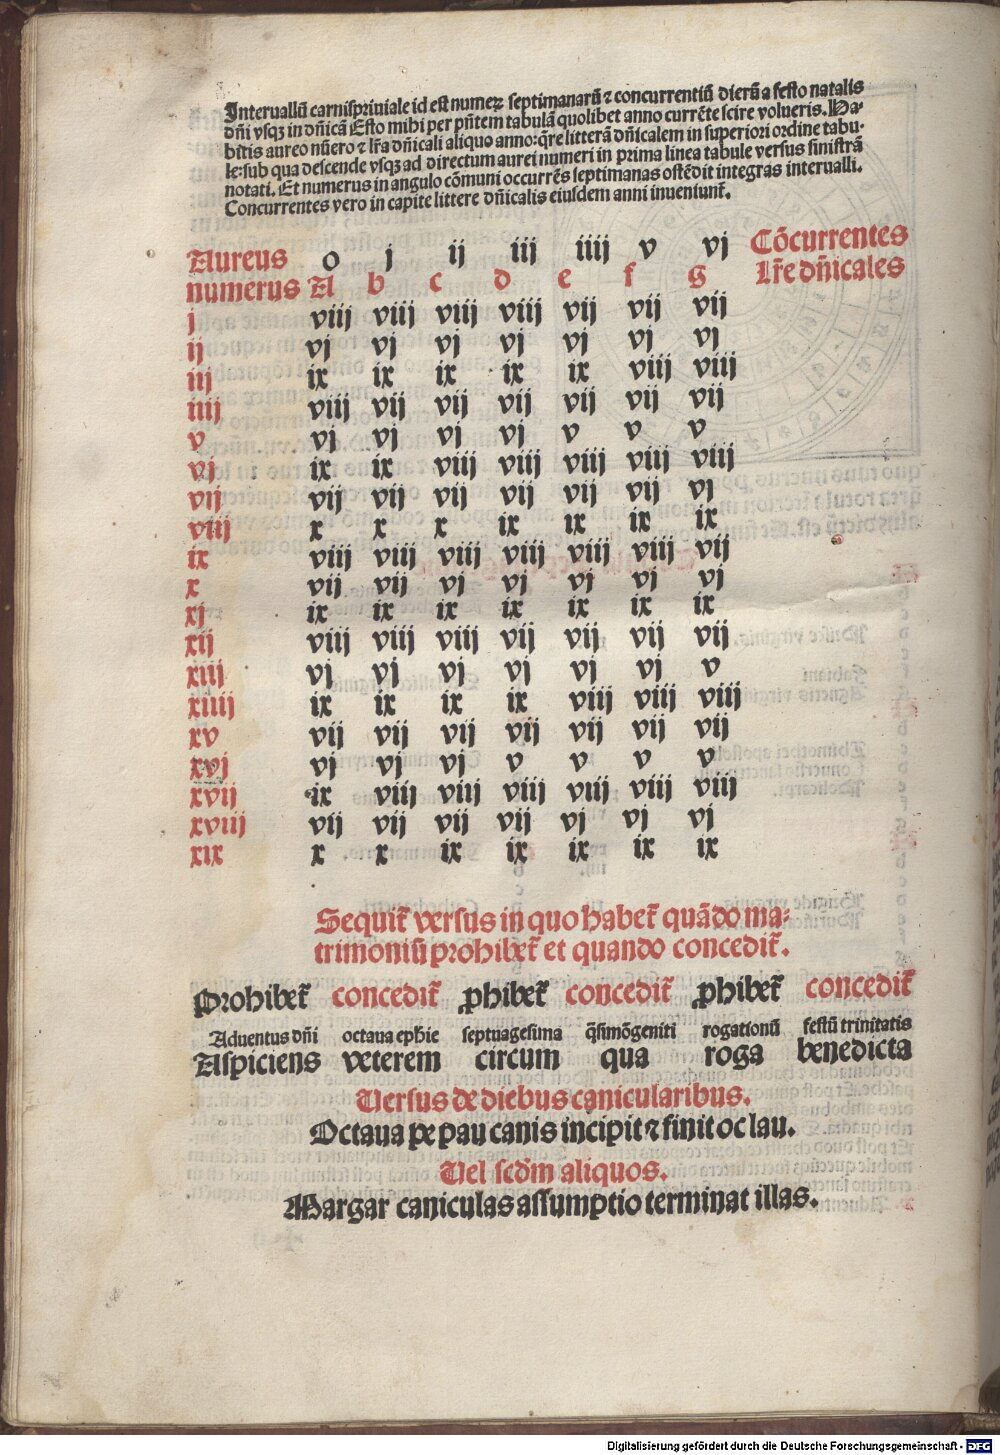 Interuallū carnispriuiale id est numeꝝ septimanarū ⁊ concurrentiū dierū a festo natalis
dñi vsqꝫ in dñicā Esto mihi per pñtem tabulā quolibet anno currēte scire volueris. Ha-
bitis aureo nūero ⁊ lr̄a dñicali aliquo anno: q̄re litterā dñicalem in superiori ordine tabu-
le: sub qua descende vsqꝫ ad directum aurei numeri in prima linea tabule versus sinistrā
notati. Et numerus in angulo cōmuni occurrēs septimanas ostēdit integras interualli.
Concurrentes vero in capite littere dñicalis eiusdem anni inueniunt᷑.
Aureus o j ij iij iiij v vj Cōcurrentes
numerus A b c d e f g Lr̄e dñicales
j viij viij viij viij vij vij vij
ij vj vj vj vj vj vj vj
iij ix ix ix ix ix viij viij
iiij viij vij vij vij vij vij vij
v vj vj vj vj v v v
vj ix ix viij viij viij viij viij
vij vij vij vij vij vij vij vj
viij x x x ix ix ix ix
ix viij viij viij viij viij viij vij
x vij vij vj vj vj vj vj
xj ix ix ix ix ix ix ix
xij viij viij viij vij vij vij vij
xiij vj vj vj vj vj vj v
xiiij ix ix ix ix viij viij viij
xv vij vij vij vij vij vij vij
xvj vj vj vj v v v v
xvij ix viij viij viij viij viij viij
xviij vij vij vij vij vj vj vj
xix x x ix ix ix ix ix
Sequit᷑ versus in quo habet᷑ quādo ma-
trimoniū prohibet᷑ et quando concedit᷑.
Prohibet᷑ concedit᷑ ꝓhibet᷑ concedit᷑ ꝓhibet᷑ concedit᷑
Aduentus dñi octaua ephie septuagesima q̄simōgeniti rogationū festū trinitatis
Aspiciens veterem circum qua roga benedicta
Versus de diebus canicularibus.
Octaua pe pau canis incipit ⁊ finit oc lau.
Vel scd̄m aliquos.
Margar caniculas assumptio terminat illas.
Digitalisierung gefördert durch die Deutsche Forschungsgemeinschaft - DFG